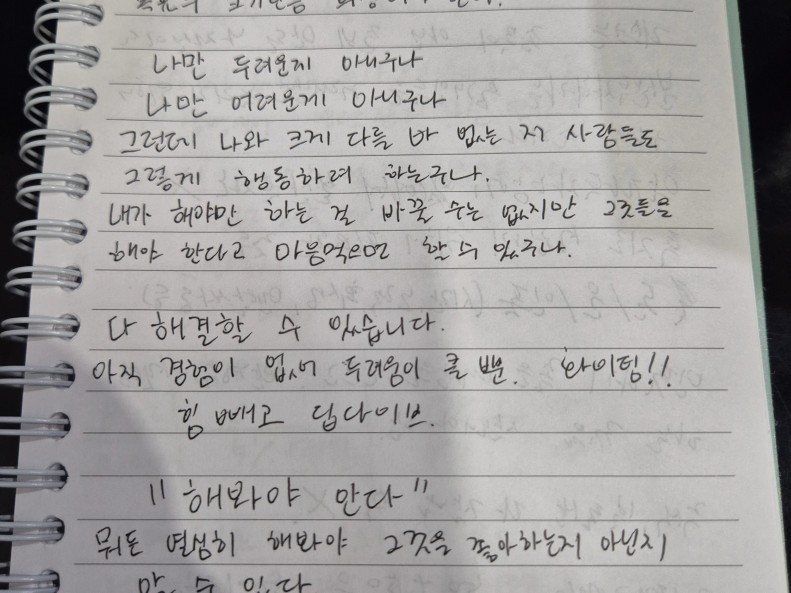 나만 두려운게 아니구나
나만 어려운게 아니구나
그런데 나와 크게 다를 바 없는 저 사람들도
그렇게 행동하려 하는구나.
내가 해야만 하는 걸 바꿀 수는 없지만 그것들을
해야 한다고 마음먹으면 할 수 있구나.
다 해결할 수 있습니다.
아직 경험이 없어 두려움이 클 뿐. 화이팅!!
힘 빼고 딥다이브.
"해봐야 안다"
뭐든 열심히 해봐야 그것을 좋아하는지 아닌지
알 수 있다